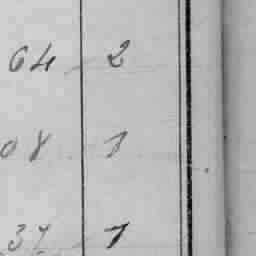 64 2
08 1
37 1